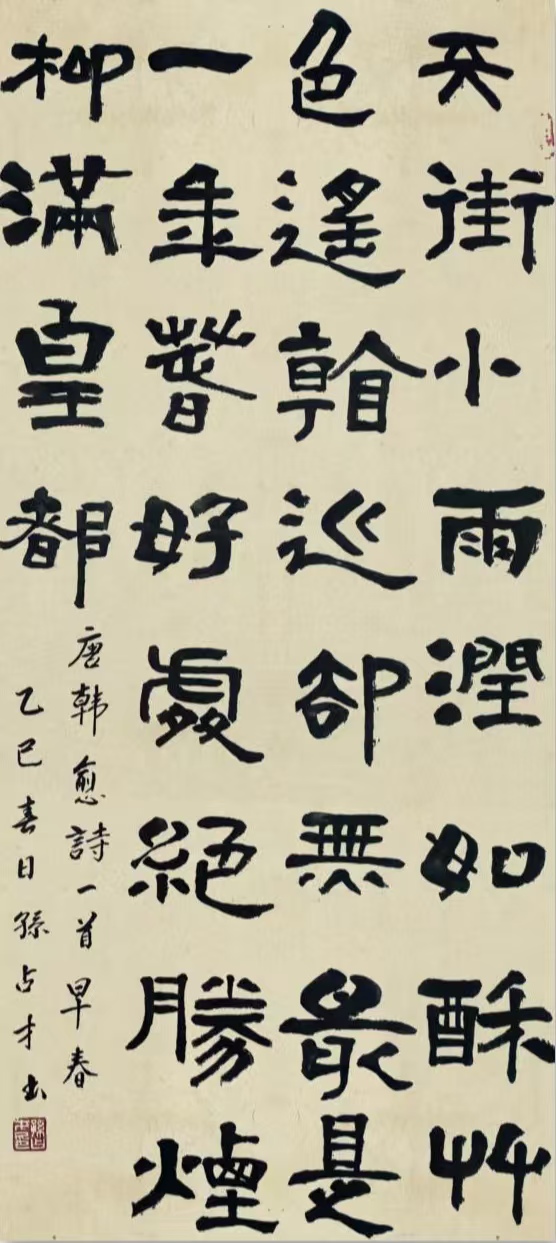 天街小雨潤如酥艸
色遙看近卻無最是
一年春好處絕勝煙
柳滿皇都
唐韓愈詩一首早春
乙巳春日孫占才书